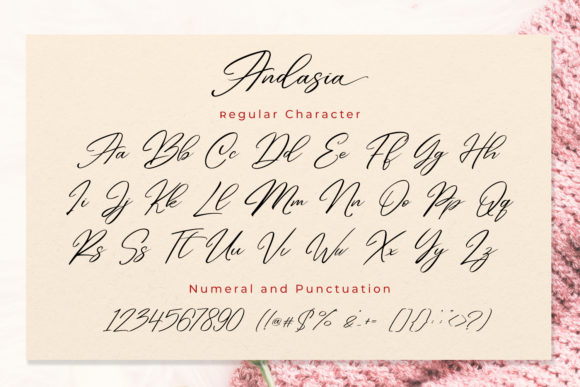 Andasia
Regular Character
Aa Bb Cc Dd Ee Ff Gg Hh
Ii Jj Kk Ll Mm Nn Oo Pp Qq
Rr Ss Tt Uu Vv Ww Xx Yy Zz
Numeral and Punctuation
1234567890 (!@#$%&_+= {}[]:;<>?)